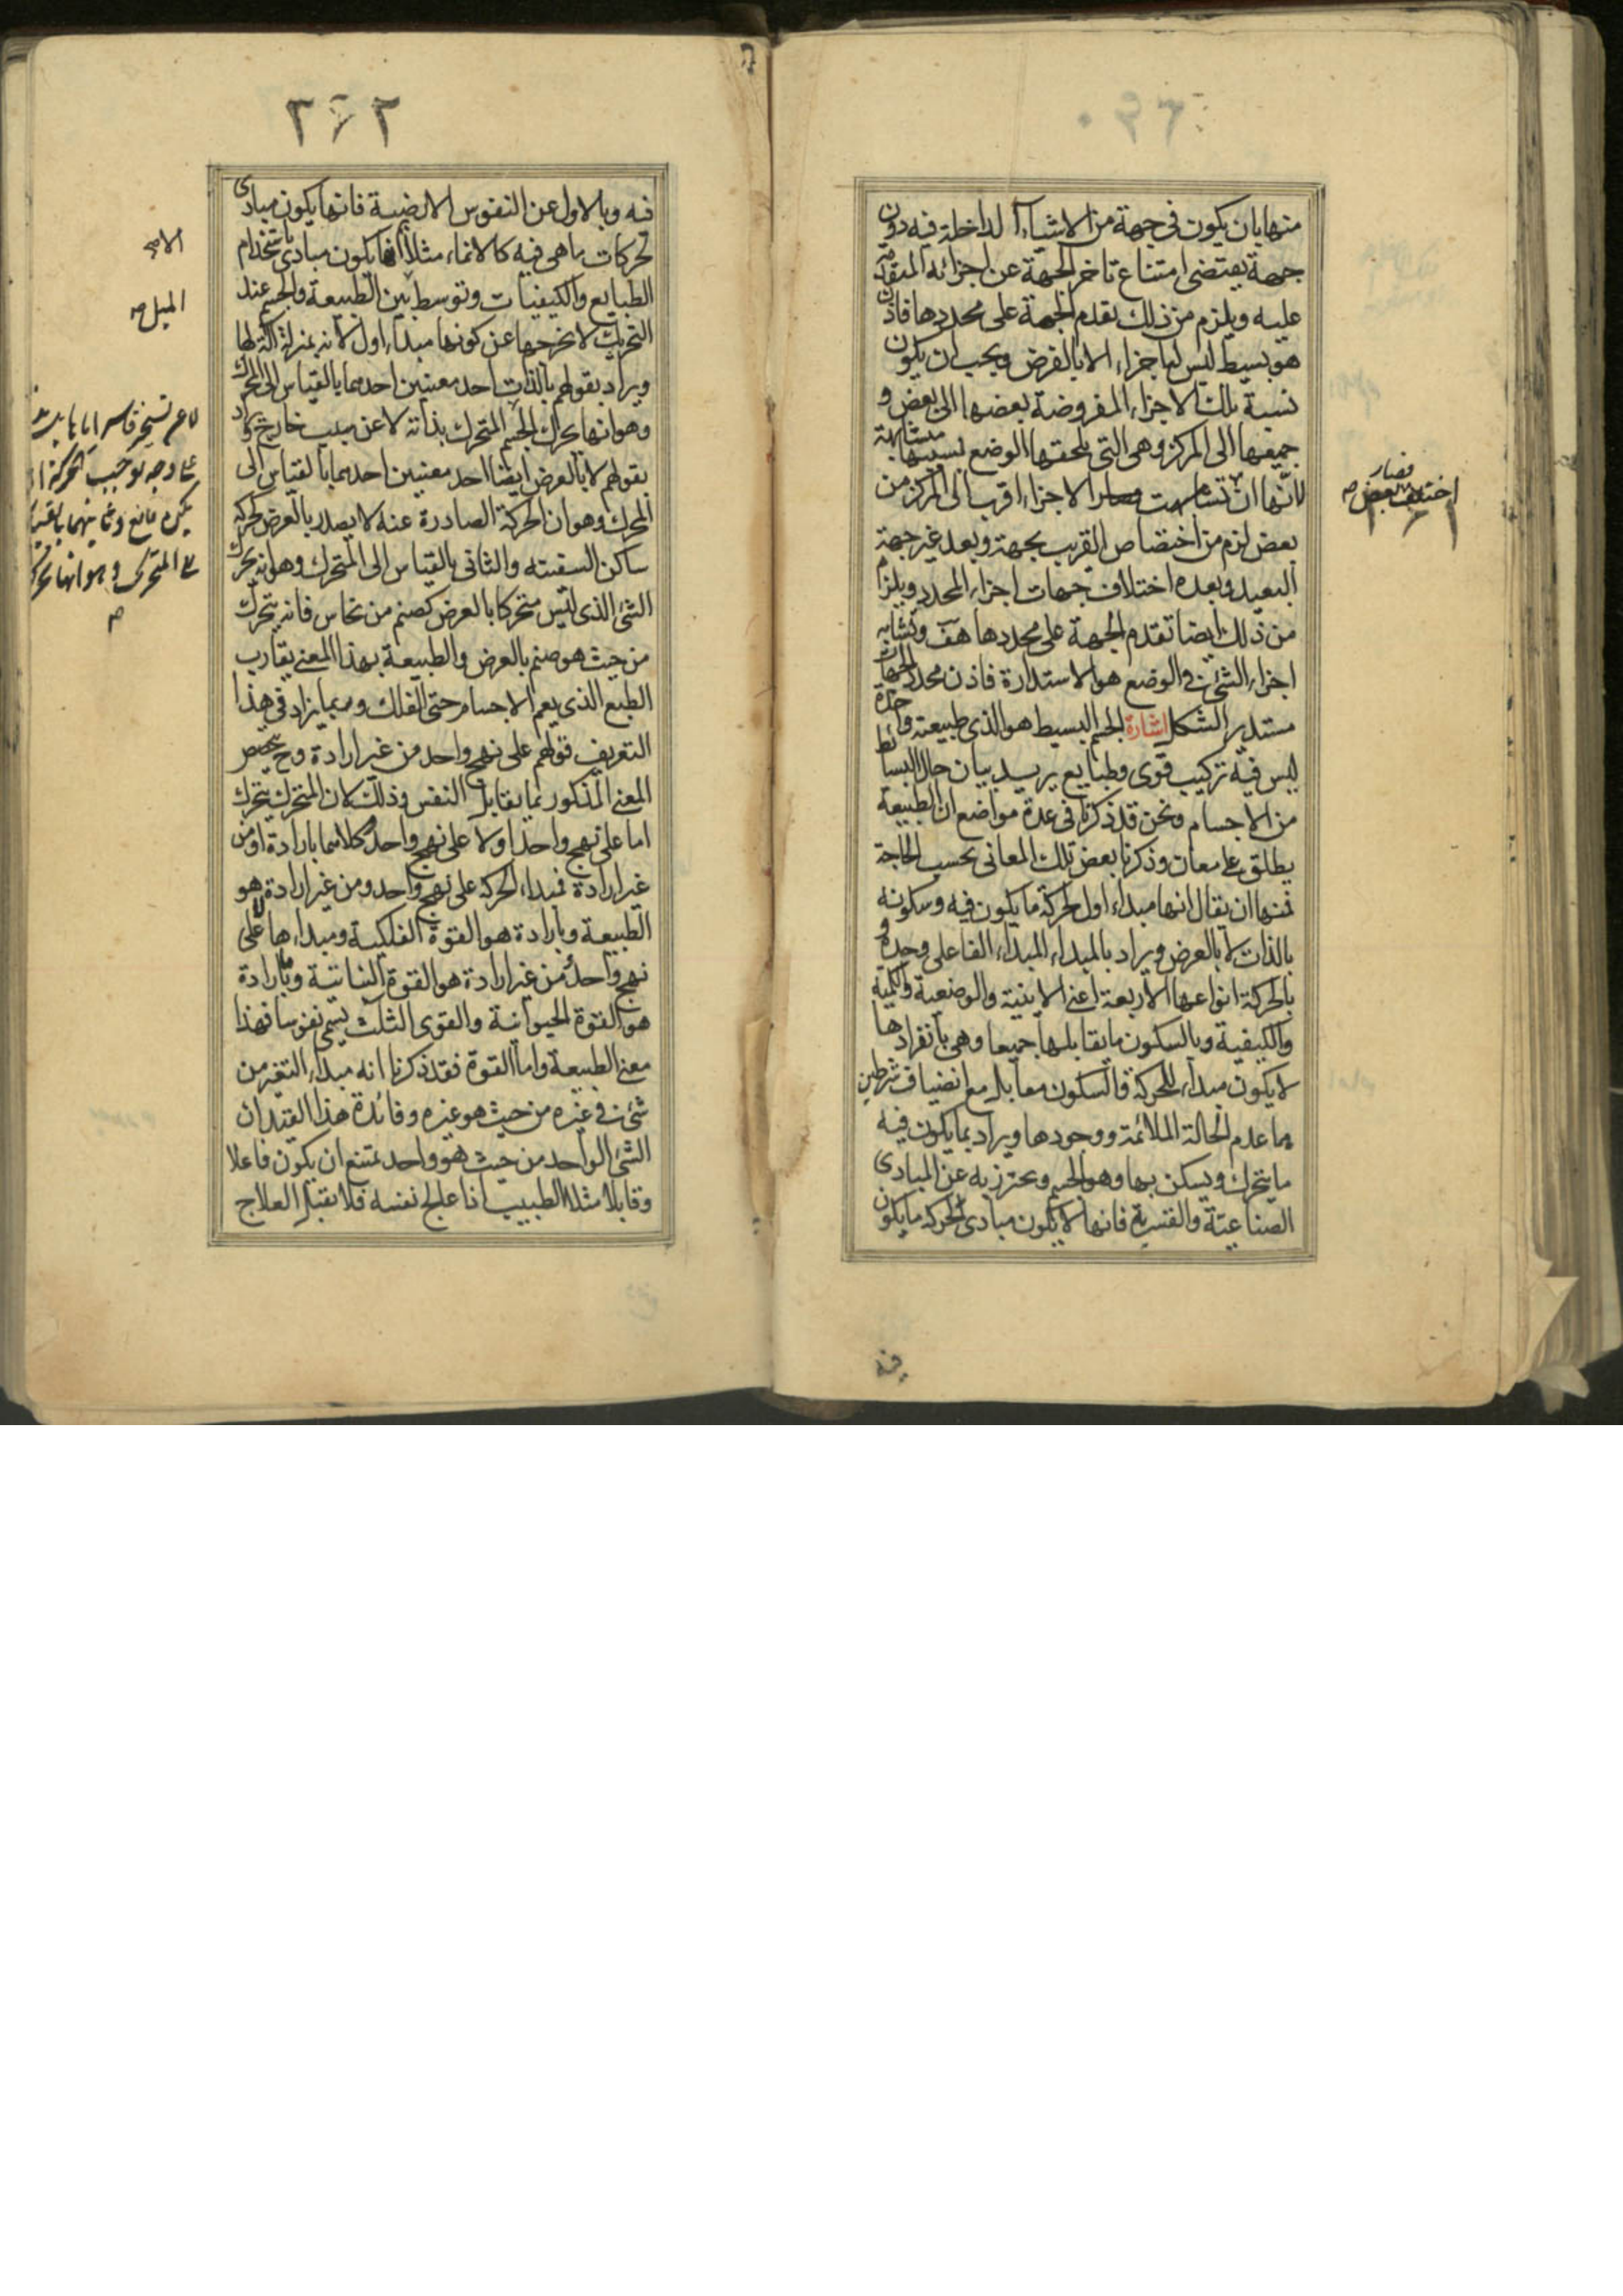 منها بان يكون فى جهة من الاشياء الداخلة فيه دون
جهة يقتضى امتناع تاخر الجهة عن اجزائه المتقدمة
عليه ويلزم من ذلك تقدم الجهة على محددها فاذن
هو بسيط ليس لها جزاء الا بالفرض ويجب ان يكون
نسبة تلك الاجزاء المفروضة بعضها الى بعض و
جميعها الى المركز وهى التى يلحقها الوضع بسببها متشابهة
لانها ان لم تتشابهت الاجزاء اقرب الى المركز من
فصار
اختلف بعض صح
بعض لزم من اختصاص القريب بجهة وبعد غير جهة
البعيد وبعده اختلاف جهات اجزاء المحدد ويلزم
من ذلك ايضا تقدم الجهة على محددها هف وتشابه
اجزاء الشئ فى الوضع هو الاستدارة فاذن محدد الجهات
مستدير الشكل اشارة الجسم البسيط هو الذى طبيعته واحدة
ليس فيه تركيب قوى وطبايع يريد بيان حال البسائط
من الاجسام ونحن قد ذكرنا فى عدة مواضع ان الطبيعة
يطلق على معان وذكرنا بعض تلك المعانى بحسب الحاجة
فمنها ان يقال انها مبداء اول لحركة ما يكون فيه وسكونه
بالذات لا بالعرض ويراد بالمبداء المبداء الفاعلى وحده و
بالحركة انواعها الاربعة اعنى الاينية والوضعية والكمية
والكيفية وبالسكون ما يقابلها جميعا وهى بانفرادها
لا يكون مبداء للحركة والسكون معا بل مع انضياف شرطين
هما عدم الحالة الملائمة ووجودها ويراد بما يكون فيه
ما يتحرك ويسكن بها وهو الجسم ويحترز به عن المبادى
الصناعية والقسرية فانها لا يكون مبادى لحركة ما يكون
فيه
٣٤٢
فيه وبالاول عن النفوس الارضية فانها يكون مبادى
لحركات ما هى فيه كالانماء مثلا الا انها يكون مبادى باستخدام
الطبايع والكيفيات وتوسط بين الطبيعة والجسم عند
الميل صح
التحريك لا يخرجها عن كونها مبداء اول لانه بمنزلة آلة لها
ويراد بقولهم بالذات احد معنيين احدهما بالقياس الى المحرك
وهو انها يحرك الجسم المتحرك بذاته لا عن سبب خارج ويراد
بقولهم لا بالعرض ايضا احد معنيين احدهما بالقياس الى
المحرك وهو ان الحركة الصادرة عنه لا يصدر بالعرض كحركة
ساكن السفينة والثانى بالقياس الى المتحرك وهو انه يحرك
الشئ الذى ليس متحركا بالعرض كصنم من نحاس فانه يتحرك
من حيث هو صنم بالعرض والطبيعة بهذا المعنى يقارب
الطبع الذى يعم الاجسام حتى الفلك وربما يزاد فى هذا
التعريف قولهم على نهج واحد من غير ارادة وح يختص
المعنى المذكور بما يقابل النفس وذلك لان المتحرك يتحرك
اما على نهج واحد او لا على نهج واحد وكلاهما بارادة او من
غير ارادة فمبداء الحركة على نهج واحد ومن غير ارادة هو
الطبيعة وبارادة هو القوة الفلكية ومبداءها لا على
نهج واحد من غير ارادة هو القوة النباتية وبارادة
هو القوة الحيوانية والقوى الثلث يسمى نفوسا فهذا
معنى الطبيعة واما القوة فقد ذكرنا انه مبداء التغير من
شئ فى غيره من حيث هو غيره وفائدة هذا القيد ان
الشئ الواحد من حيث هو واحد يمتنع ان يكون فاعلا
وقابلا مثلا الطبيب اذا عالج نفسه فلا يقبل العلاج
على وجه يوجب الحركة ان لم
يكن مانع وثانيهما بالقياس
الى المتحرك وهو انها يحرك
صح